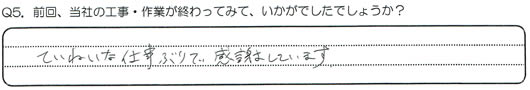 Q5. 前回、当社の工事・作業が終わってみて、いかがでしたでしょうか？
ていねいな仕事ぶりで、感謝しています